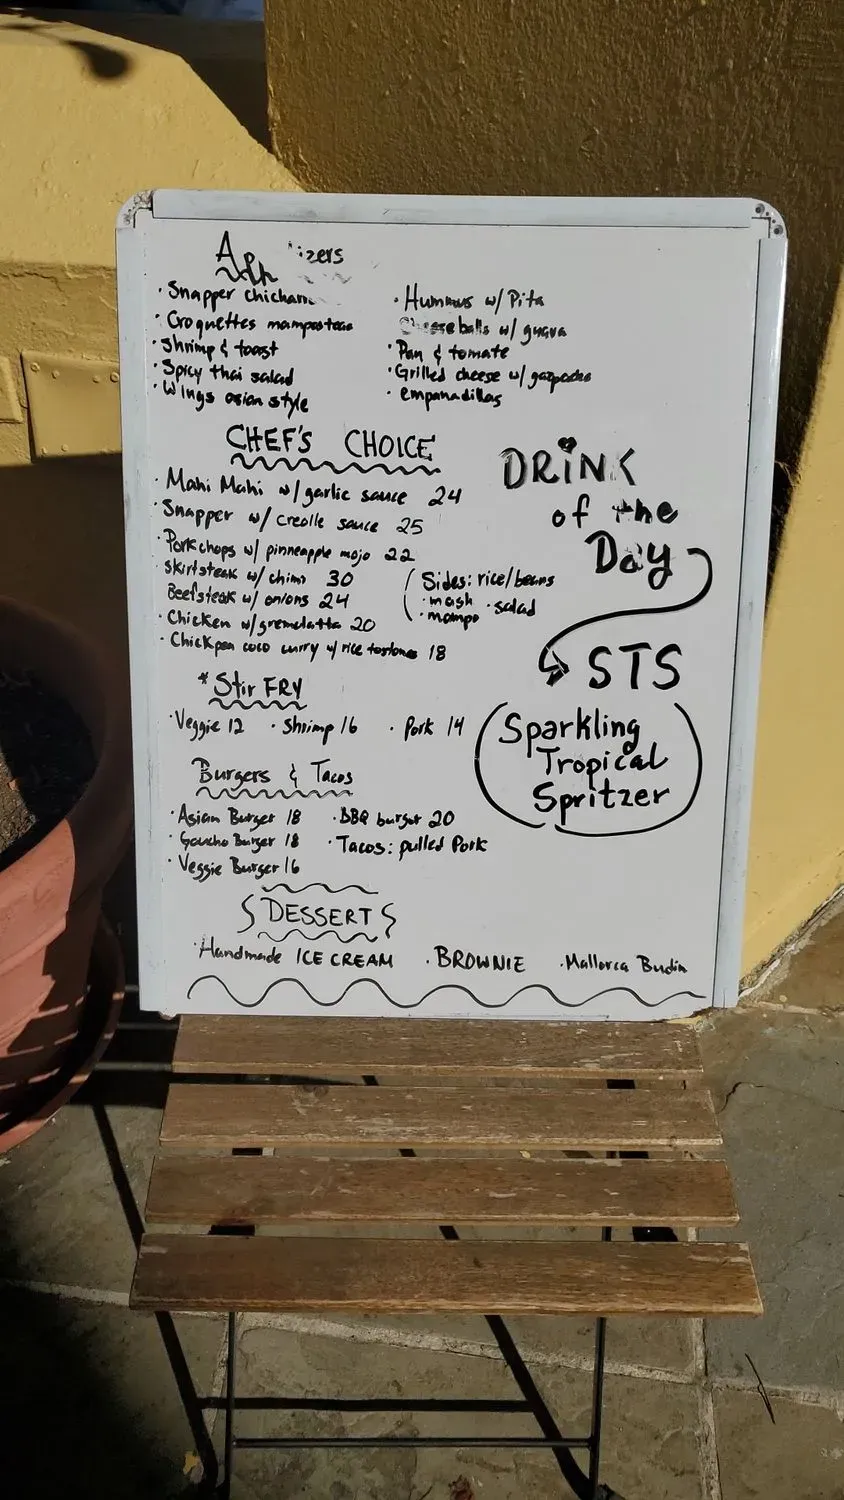 Appetizers
· Snapper chicharr
· Croquettes mamposteao
· Shrimp & toast
· Spicy thai salad
· Wings asian style
· Hummus w/ Pita
Cheese balls w/ guava
· Pan & tomate
· Grilled cheese w/ gazpacho
· empanadillas
CHEF'S CHOICE
· Mahi Mahi w/ garlic sauce 24
· Snapper w/ creolle sauce 25
· Pork chops w/ pinneapple mojo 22
· Skirtsteak w/ chimi 30
Beefsteak w/ onions 24
· Chicken w/ gremolatta 20
· Chickpea coco curry w/ rice tostones 18
( Sides: rice/beans
· mash · salad
· mampo
DRINK
of the
Day
STS
(Sparkling
Tropical
Spritzer)
* Stir FRY
· Veggie 12 · Shrimp 16 · Pork 14
Burgers & Tacos
· Asian Burger 18 · BBQ burger 20
· Gaucho Burger 18 · Tacos: pulled Pork
· Veggie Burger 16
DESSERT
· Handmade ICE CREAM · BROWNIE · Mallorca Budin